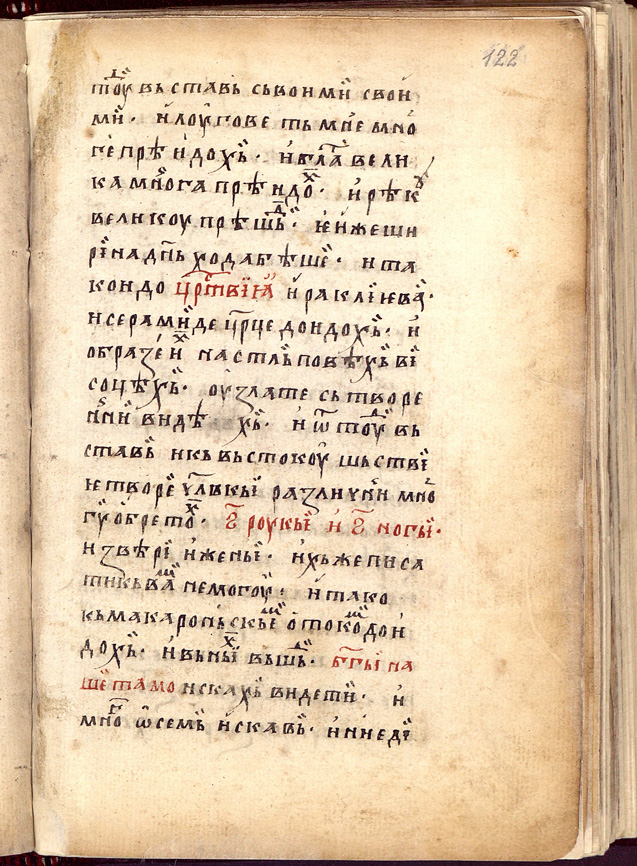 122
тоу въставь съ воими свои
ми· и лоугове тьмне мно
ге прѣидохь· и блата вели
ка многа прѣидох· и рѣкоу
великоу прѣшьд· ѥиже ши
рина дньь хода бѣше· и та
ко и до црьтвиꙗ ираклиева·
и серамиде црце доидохь· и
образе их на стльповѣхь ви
соцѣхь· оу злате сьтворе
нии видѣхь· и ѿ тоуд вь
ставь ꙗкь вьстокоу шьстви
ѥ творе члвкы различни мно
гы обретох· ѕ роукы и ѕ ногы·
и звѣри ижены· ихьже писа
тик вам немогоу· и тако
кь макароньскые отокомь дои
дохь· и вь ных вьшьд· бгы на
ше тамо искахь видети· и
много ѡ семь искавь· и ни еди